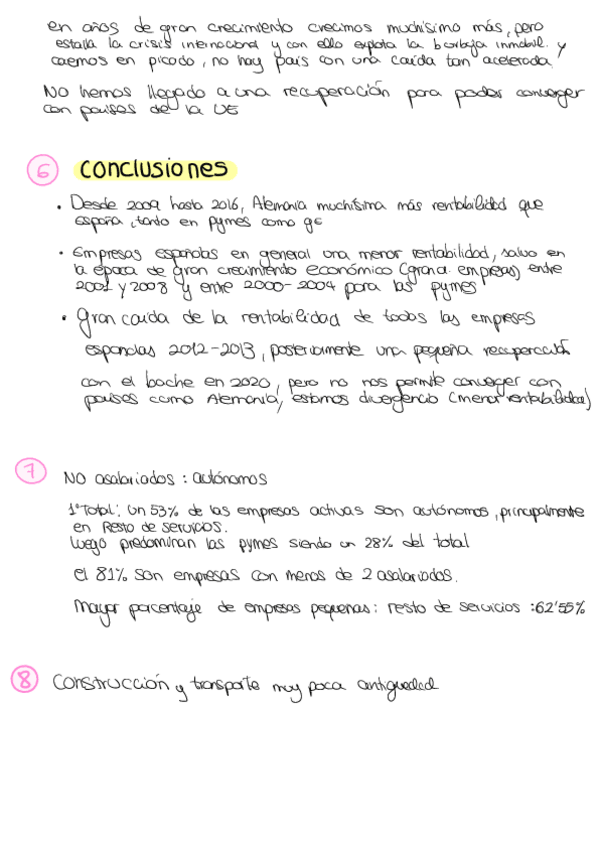 en años de gran crecimiento crecimos muchísimo más, pero
estalla la crisis internacional y con ello explota la burbuja inmobil. y
caemos en picado, no hay país con una caída tan acelerada.
No hemos llegado a una recuperación para poder converger
con países de la UE
6 Conclusiones
• Desde 2009 hasta 2016, Alemania muchísima más rentabilidad que
España, tanto en pymes como ge
• Empresas españolas en general una menor rentabilidad, salvo en
la época de gran crecimiento económico (grand. empresas) entre
2001 y 2008 y entre 2000-2004 para las pymes
• Gran caída de la rentabilidad de todas las empresas
espanolas 2012-2013, posteriormente una pequeña recuperación
con el bache en 2020, pero no nos permite converger con
países como Alemania, estamos divergencia (menor rentabilidad)
7 No asalariados: autónomos
1º Total: un 53% de las empresas activas son autónomos, principalmente
en Resto de servicios.
Luego predominan las pymes siendo un 28% del total
el 81% son empresas con menos de 2 asalariados.
Mayor porcentaje de empresas pequeñas: resto de servicios: 62'55%
8 Construcción y transporte muy poca antiguedad